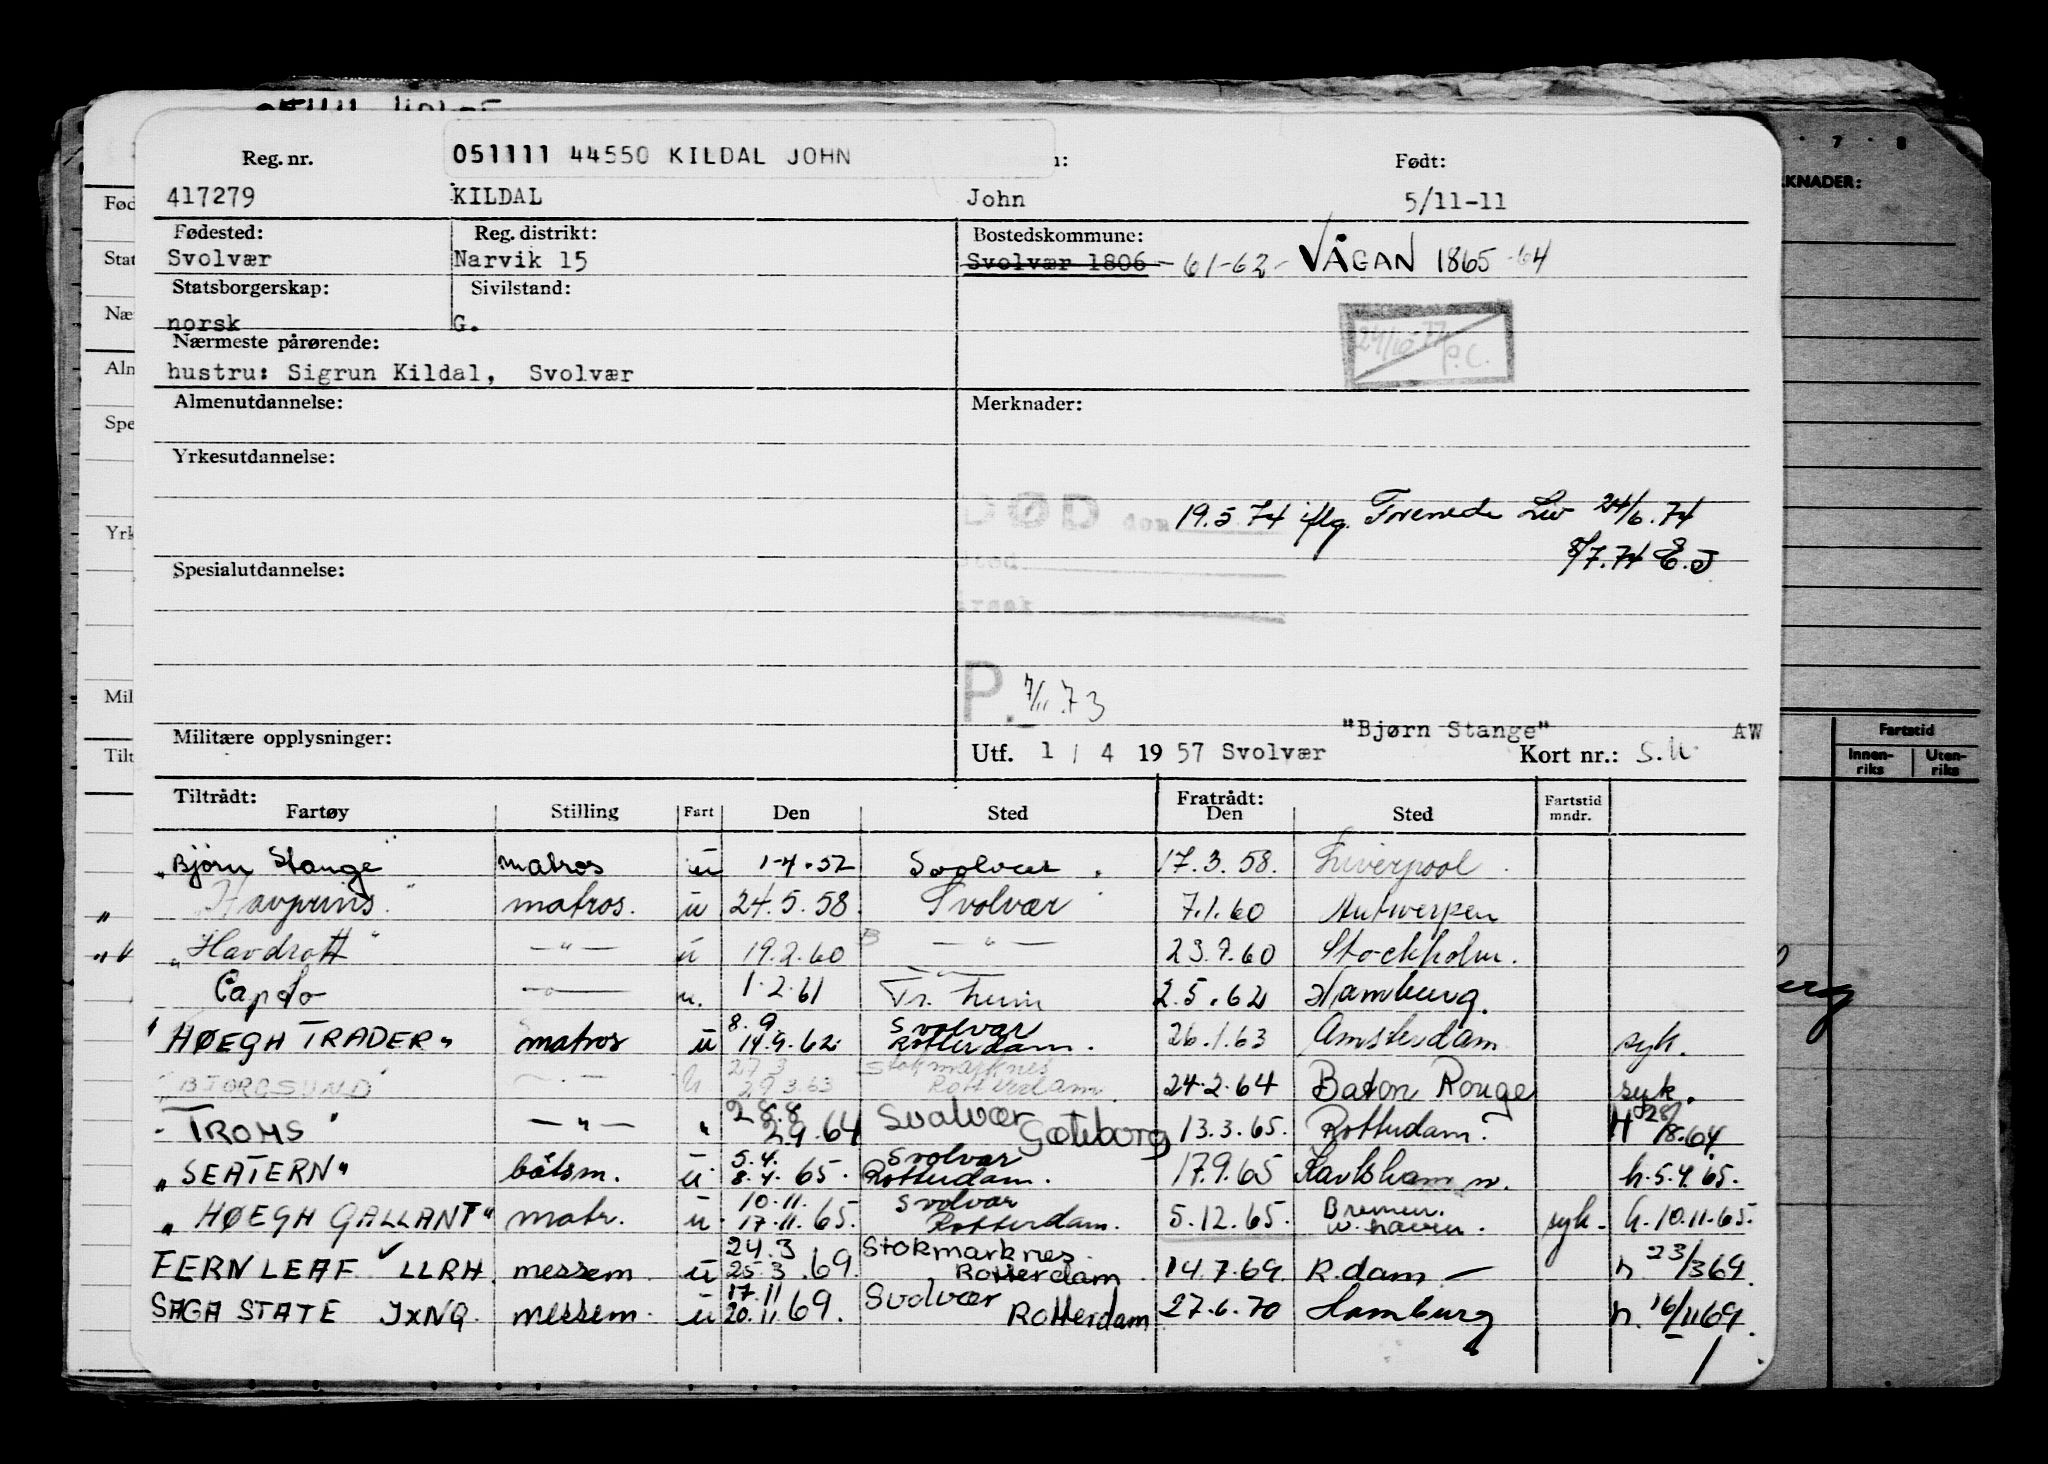 Reg. nr. 051111 44550 KILDAL JOHN Født:
417279 KILDAL John 5/11-11
Fødested: Reg. distrikt: Bostedskommune:
Svolvær Narvik 15 Svolvær 1806 - 61-62 - VÅGAN 1865-64
Statsborgerskap: Sivilstand:
norsk G.
Nærmeste pårørende:
hustru: Sigrun Kildal, Svolvær
24/10-77 P.C.
Almenutdannelse: Merknader:
Yrkesutdannelse:
DØD den 19.5.74 iflg. Forenede Liv 24/6.74
8/7.74 E.J
Sted
Spesialutdannelse:
Årsak
P. 7/11.73
"Bjørn Stange" AW
Militære opplysninger: Utf. 1 / 4 1957 Svolvær Kort nr.:
Tiltrådt: Fratrådt:
Fartøy Stilling Fart Den Sted Den Sted Fartstid mndr.
"Bjørn Stange" matros u 1-4-52 Svolvær. 17.3.58. Liverpool.
"Havprins" matros. u 24.5.58. Svolvær 7.1.60 Antwerpen
"Havdrott" — " — u 19.2.60 — " — 23.9.60 Stockholm.
Capto — " — u. 1.2.61 Tr.heim 2.5.62 Hamburg.
"HØEGH TRADER" matros u 8.9. 14.9.62 Svolvær Rotterdam. 26.1.63 Amsterdam syk.
"BJORGSUND" — " — u. 27.3 29.3.63 Stokmarknes Rotterdam 24.2.64 Baton Rouge syk.
"TROMS" — " — " 28.8 2.9.64 Svolvær Gøteborg 13.3.65. Rotterdam. H 28/8.64
"SEATERN" båtsm. u. 5.4. 8.4.65. Svolvær Rotterdam. 17.9.65 Karlshamn. h.5.4.65.
"HØEGH GALLANT" matr. u. 10.11. 17.11.65. Svolvær Rotterdam. 5.12.65. Bremen. syk. h.10.11.65.
FERNLEAF LLRH messem. u 24.3 25.3.69. Stokmarknes. Rotterdam 14.7.69. R.dam — h. 23/3 69.
SAGA STATE JXNQ. messem. u 17.11 20.11 69. Svolvær Rotterdam 27.6.70 Hamburg h. 16/11 69.
KNADER:
Fartstid
Innen-riks Uten-riks
Fød
Stat
Nær
Alm
Spe
Yrk
Mil
Tilt